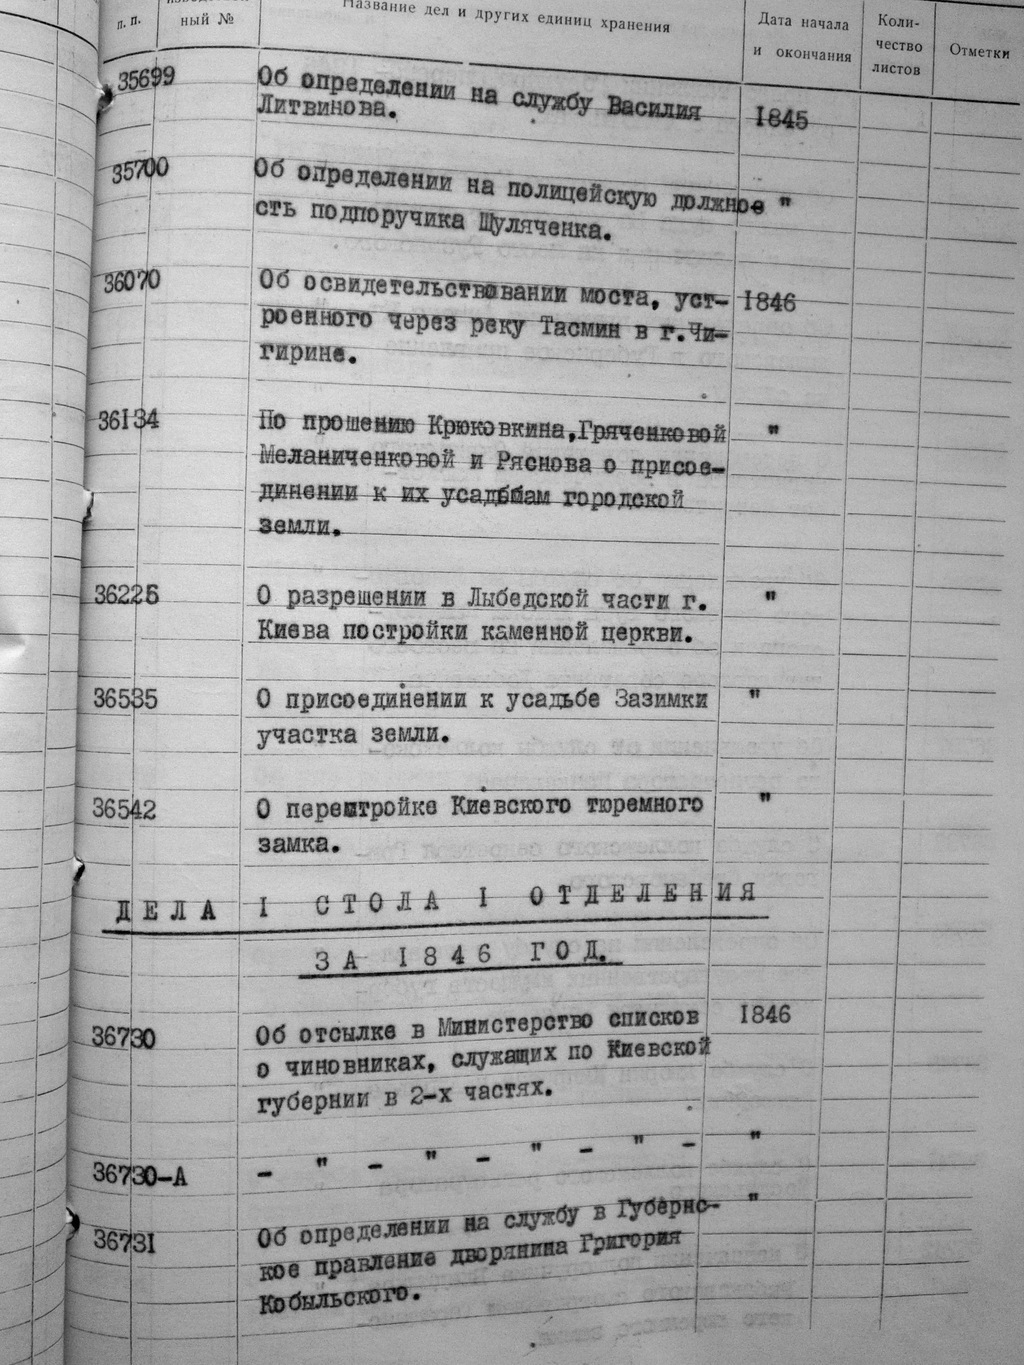 п. п.
ный №
Название дел и других единиц хранения
Дата начала
и окончания
Коли-
чество
листов
Отметки
35699 Об определении на службу Василия
Литвинова. 1845
35700 Об определении на полицейскую должно "
сть подпоручика Шуляченка.
36070 Об освидетельствовании моста, уст- 1846
роенного через реку Тасмин в г.Чи-
гирине.
36134 По прошению Крюковкина,Гряченковой "
Меланиченковой и Ряснова о присое-
динении к их усадьбам городской
земли.
36226 О разрешении в Лыбедской части г. "
Киева постройки каменной церкви.
36535 О присоединении к усадьбе Зазимки "
участка земли.
36542 О перештройке Киевского тюремного "
замка.
ДЕЛА I СТОЛА I ОТДЕЛЕНИЯ
ЗА 1846 ГОД.
36730 Об отсылке в Министерство списков 1846
о чиновниках, служащих по Киевской
губернии в 2-х частях.
36730-А - " - " - " - " - "
36731 Об определении на службу в Губернс- "
кое правление дворянина Григория
Кобыльского.